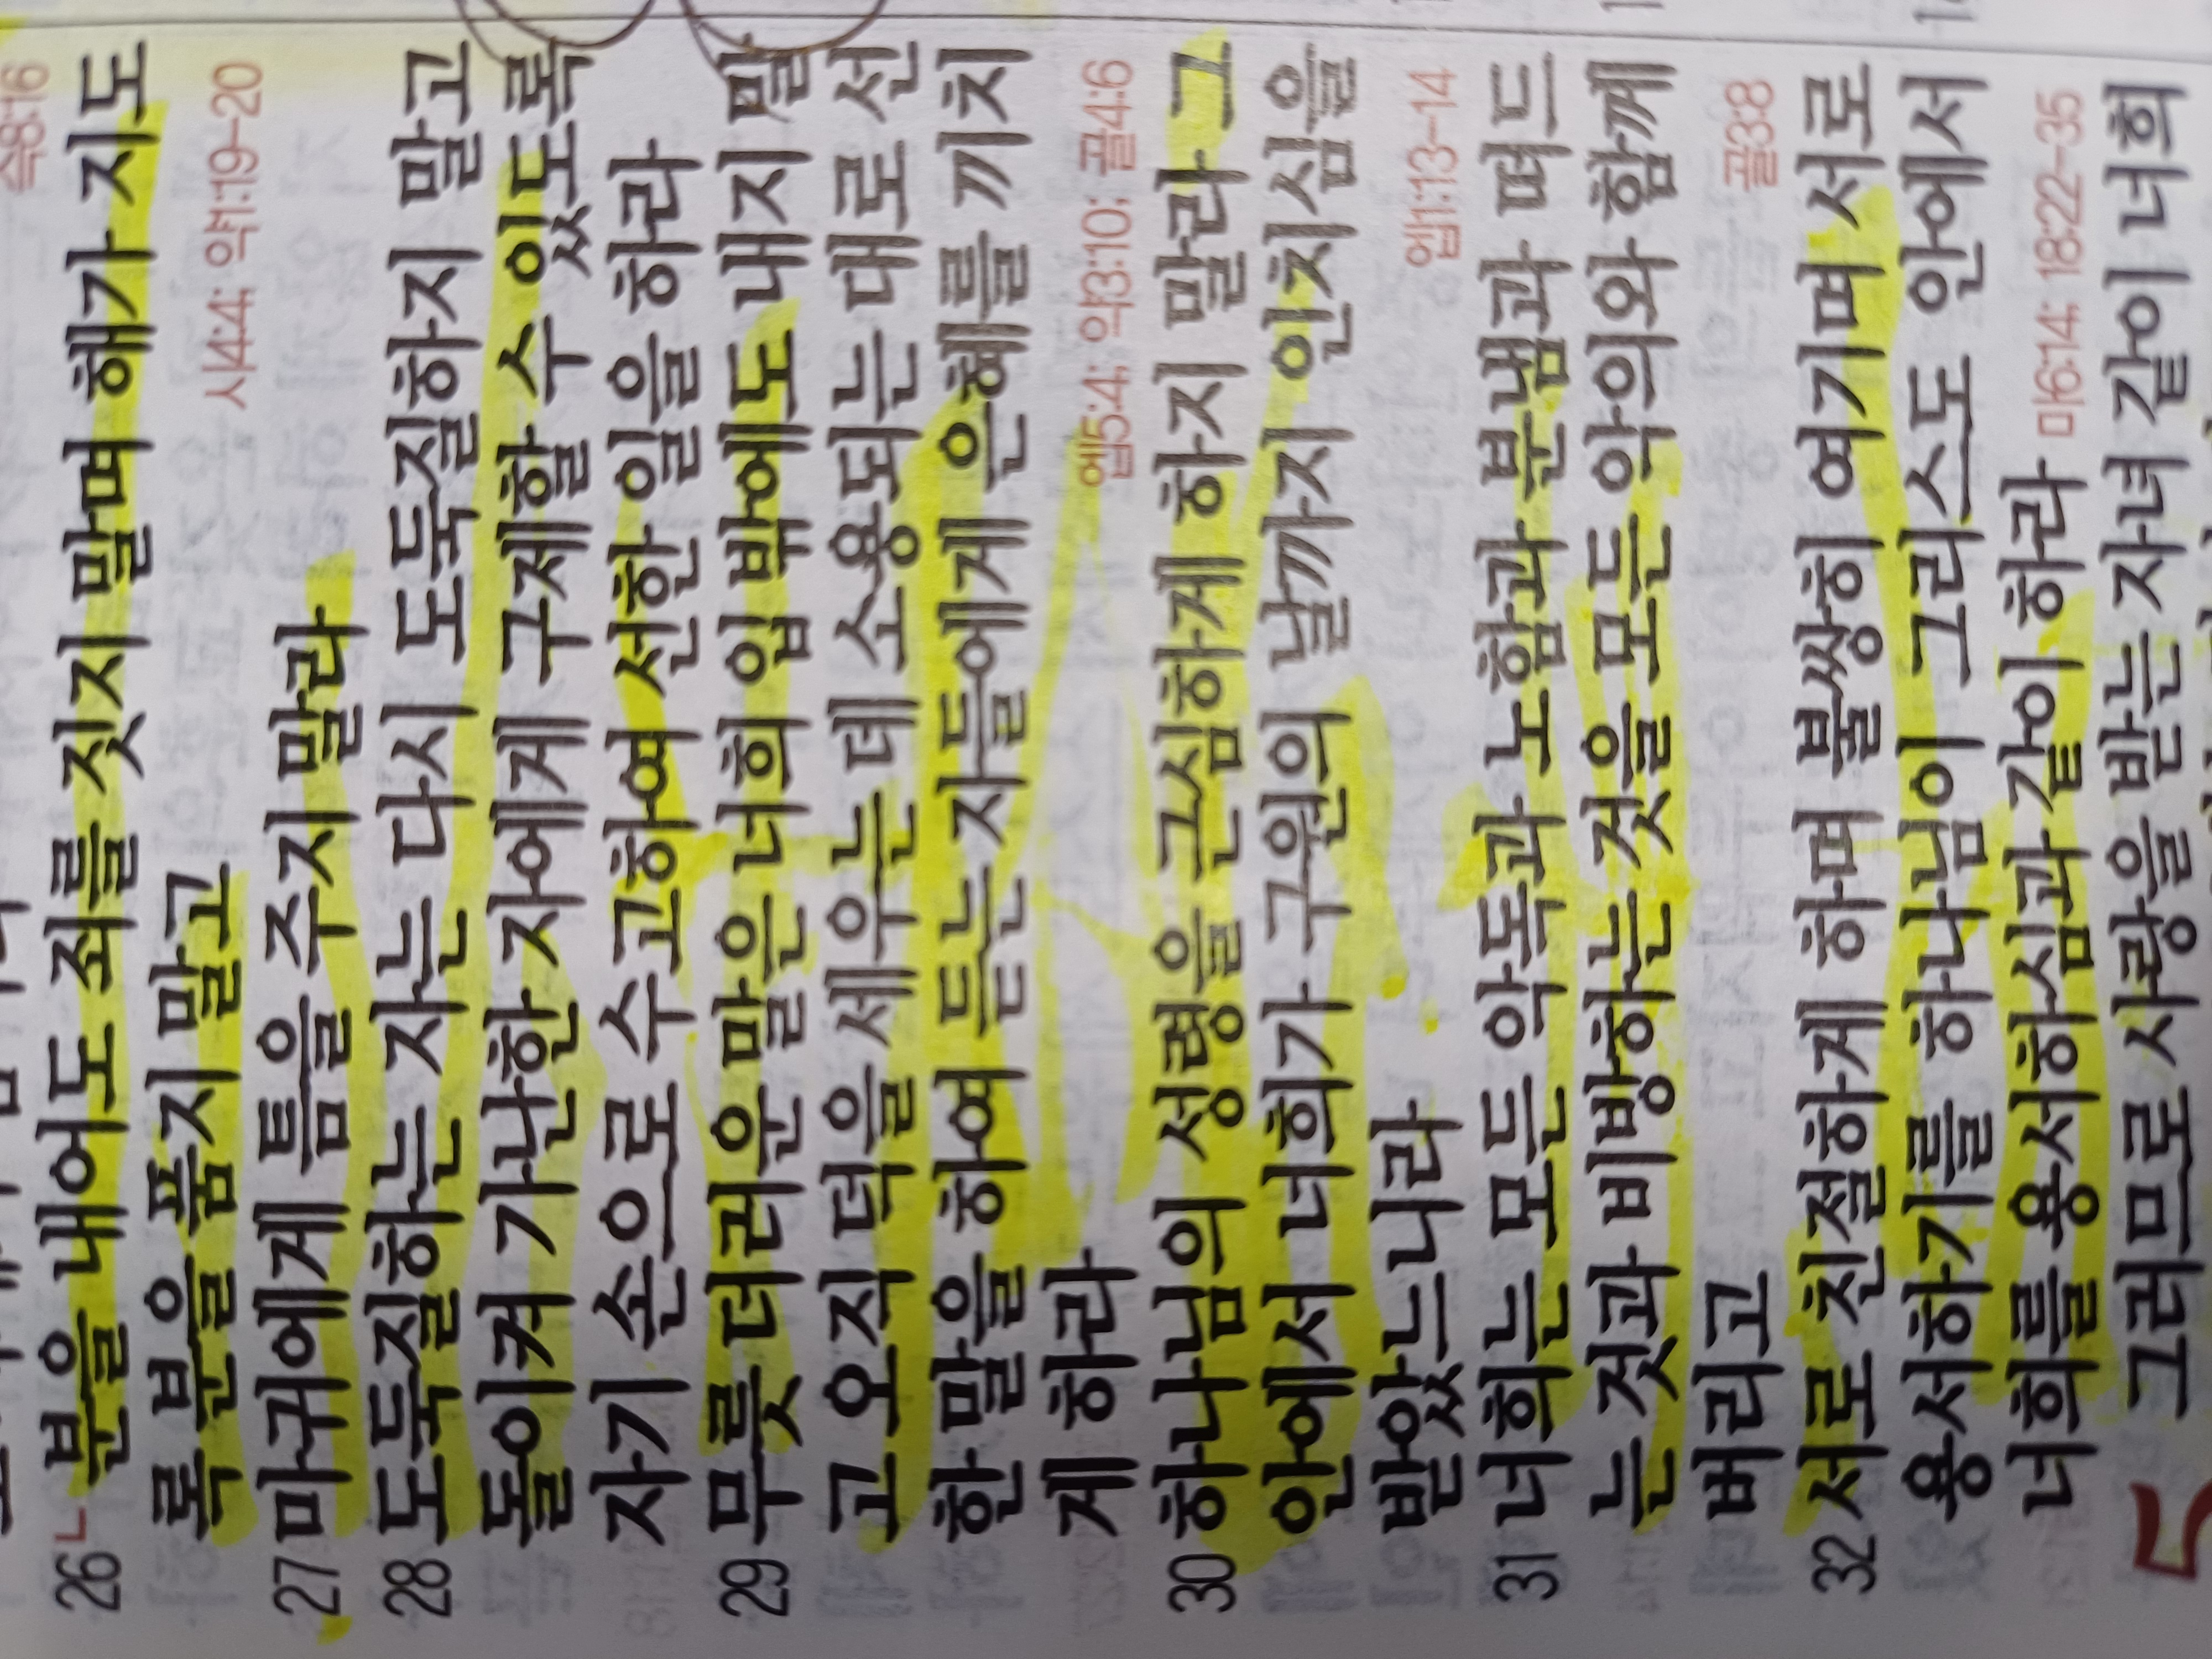 슥8:16
26 ㄴ분을 내어도 죄를 짓지 말며 해가 지도
록 분을 품지 말고
시4:4; 약1:19-20
27 마귀에게 틈을 주지 말라
28 도둑질하는 자는 다시 도둑질하지 말고
돌이켜 가난한 자에게 구제할 수 있도록
자기 손으로 수고하여 선한 일을 하라
29 무릇 더러운 말은 너희 입 밖에도 내지 말
고 오직 덕을 세우는 데 소용되는 대로 선
한 말을 하여 듣는 자들에게 은혜를 끼치
게 하라
엡5:4; 약3:10; 골4:6
30 하나님의 성령을 근심하게 하지 말라 그
안에서 너희가 구원의 날까지 인치심을
받았느니라
엡1:13-14
31 너희는 모든 악독과 노함과 분냄과 떠드
는 것과 비방하는 것을 모든 악의와 함께
버리고
골3:8
32 서로 친절하게 하며 불쌍히 여기며 서로
용서하기를 하나님이 그리스도 안에서
너희를 용서하심과 같이 하라
마6:14; 18:22-35
5 그러므로 사랑을 받는 자녀 같이 너희